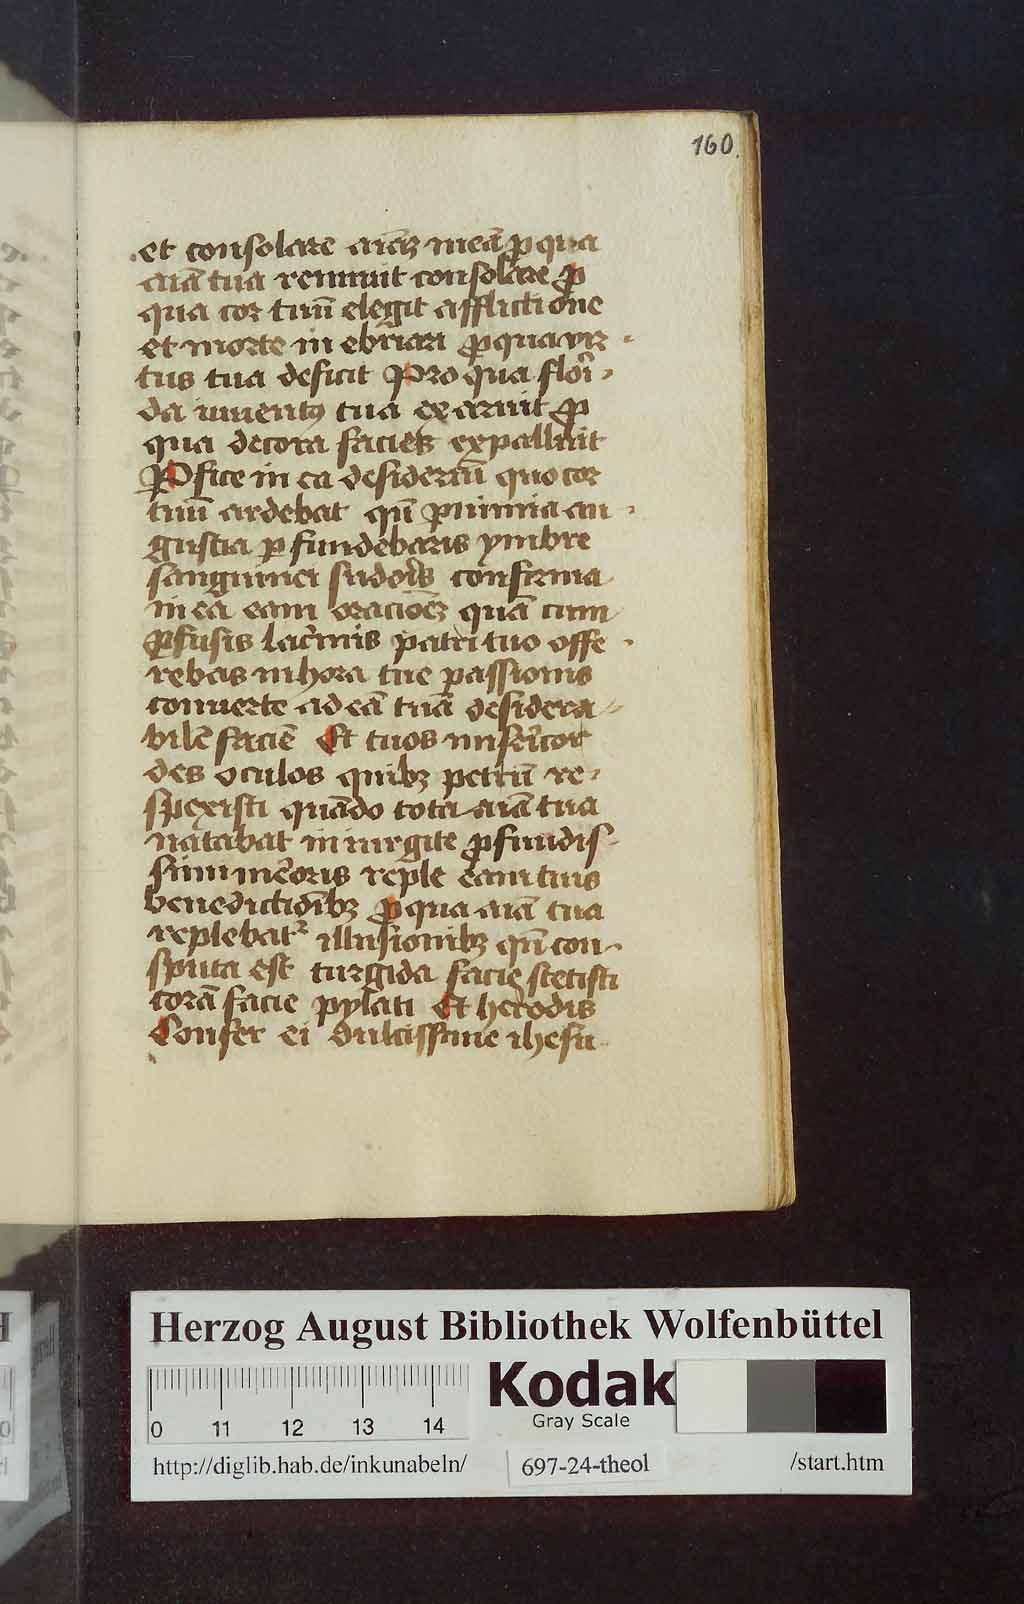 160
et consolare aīaꝫ meā ꝓ qua
aīa tua rennuit consolare ꝓ
qua cor tuū elegit afflictione
et morte in ebriari ꝓ qua vir
tus tua deficit Pro qua flori
da iuuentꝰ tua exaruit ꝓ
qua decora facies expalluit
Ꝑfice in ea desideriū quo cor
tuū ardebat qn̄ ꝑ nimia an
gustia ꝑfundebaris ymbre
sanguinei sudoris confirma
in ea eam oracionēꝫ quā cum
ꝓfusis lacrimis patri tuo offe
rebas in hora tue passionis
conuerte ad eā tuā desidera
bilē faciē Et tuos misericor
des oculos quibꝫ petrū re
spexisti quādo tota aīa tua
natabat in iurgite ꝓfundis
simi meroris reple eam tuis
benedictiōibꝫ ꝓ qua aīa tua
replebatᷣ illusionibꝫ qn̄ con
sputa est turgida facie stetisti
corā facie pylati Et herodis
Confer ei dulcissime ihesu
Herzog August Bibliothek Wolfenbüttel
0 11 12 13 14
Kodak
Gray Scale
http://diglib.hab.de/inkunabeln/ 697-24-theol /start.htm